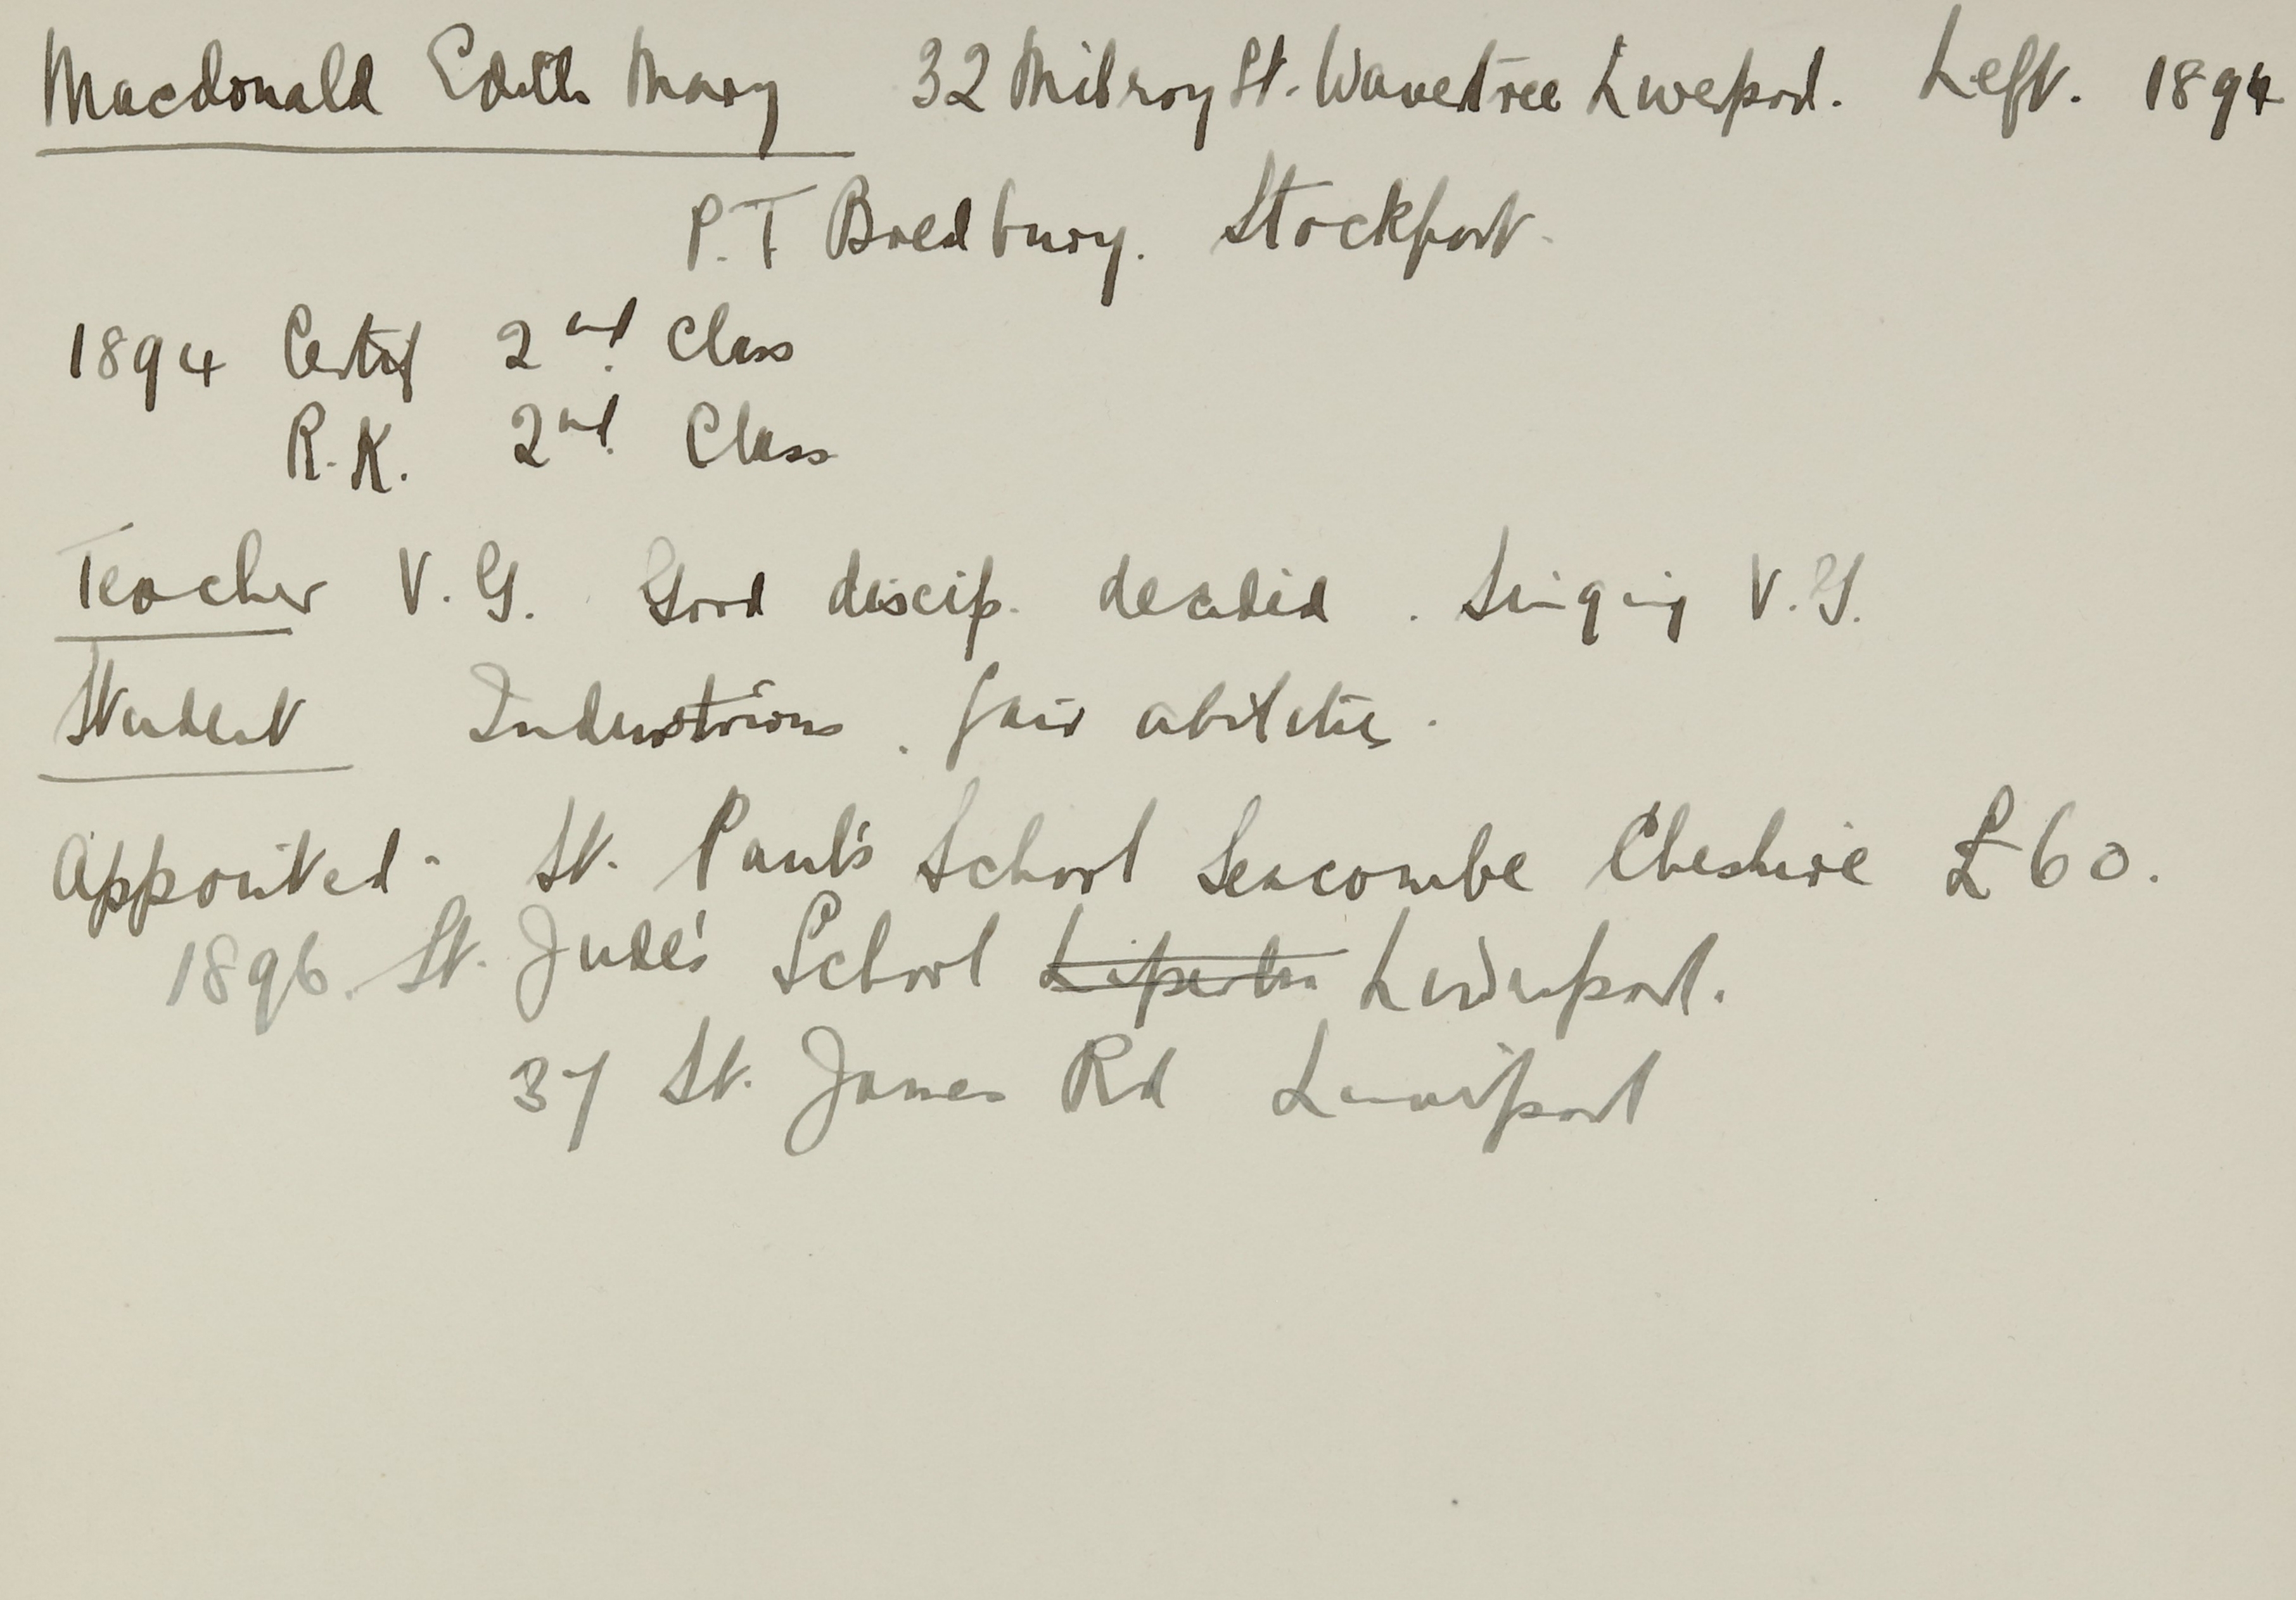 Macdonald Edith Mary 32 Milroy St. Wavertree Liverpool. Left. 1894
P.T Bredbury. Stockport.
1894 Certif 2nd. Class
R.K. 2nd. Class
Teacher V.G. Good discip. decided. Singing V.G.
Student Industrious. fair abilities.
Appointed - St. Paul's School Seacombe Cheshire £60.
1896. St. Jude's School Liverpool.
37 St. James Rd Liverpool